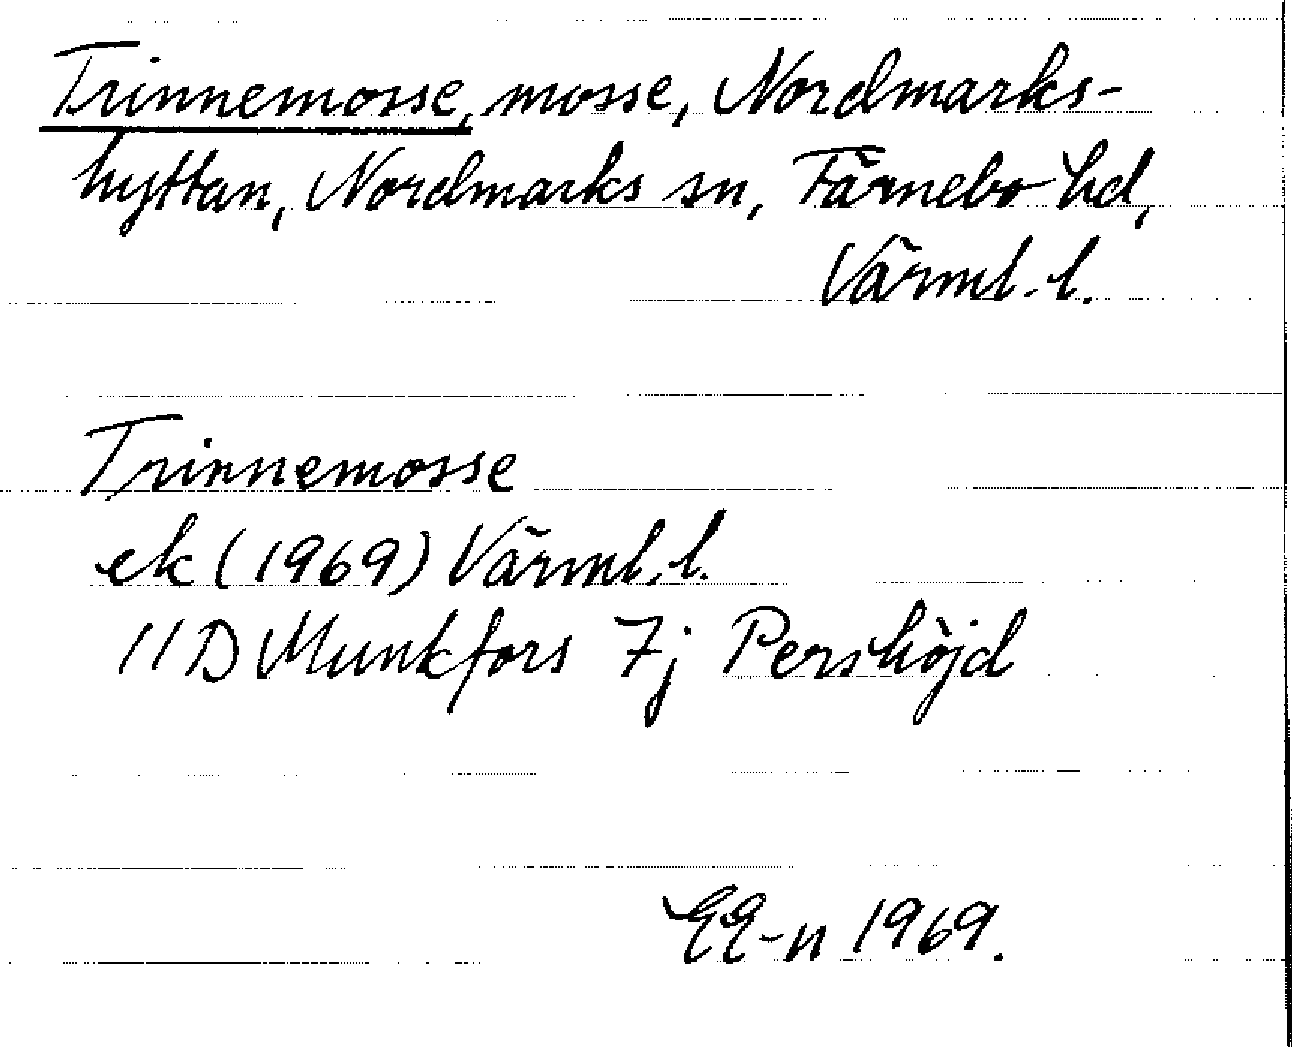 Trinnemosse, mosse, Nordmarks-
hyttan, Nordmarks sn, Färnebo hd,
Värml. l.
Trinnemosse
ek (1969) Värml. l.
11D Munkfors 7j Pershöjd
1969.